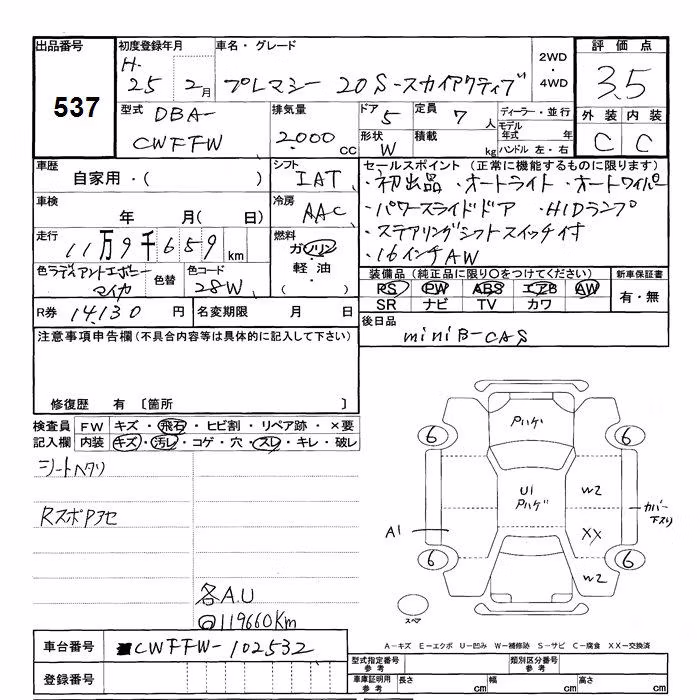 出品番号 初度登録年月 車名・グレード 2WD・4WD 評価点
537
H.25年 2月 プレマシー 20S-スカイアクティブ 3.5
型式 DBA-CWFFW 排気量 2,000cc ドア 5 定員 7人 ディーラー・並行 外装 内装
形状 W 積載 kg モデル年式 年 ハンドル 左・右 C C
車歴 自家用・( ) シフト IAT セールスポイント (正常に機能するものに限ります)
・初出品 ・オートライト ・オートワイパー
車検 年 月( 日) 冷房 AAC ・パワースライドドア ・HIDランプ
走行 11万9千659km 燃料 ガソリン・軽油 ( ) ・ステアリングシフトスイッチ付
・16インチAW
色 ラディアントエボニーマイカ 色替 色コード 28W
装備品 (純正品に限り○をつけてください) 新車保証書
PS PW ABS エアB AW 有・無
SR ナビ TV カワ
R券 14,130円 名変期限 月 日 後日品
miniB-CAS
注意事項申告欄 (不具合内容等は具体的に記入して下さい)
修復歴 有 〔箇所 〕
検査員記入欄 FW キズ・飛石・ヒビ割・リペア跡・×要
内装 キズ・汚レ・コゲ・穴・スレ・キレ・破レ
シートヘタリ
RスポPアセ
各A.U
@119660Km
Pハゲ
6 6
U1
Pハゲ
W2
カバー下がり
A1
XX
6 6
W2
スペア
A-キズ E-エクボ U-凹み W-補修跡 S-サビ C-腐食 XX-交換済
車台番号 CWFFW-102532
型式指定番号 参考 類別区分番号 参考
登録番号 車庫証明用 参考 長さ cm 幅 cm 高さ cm